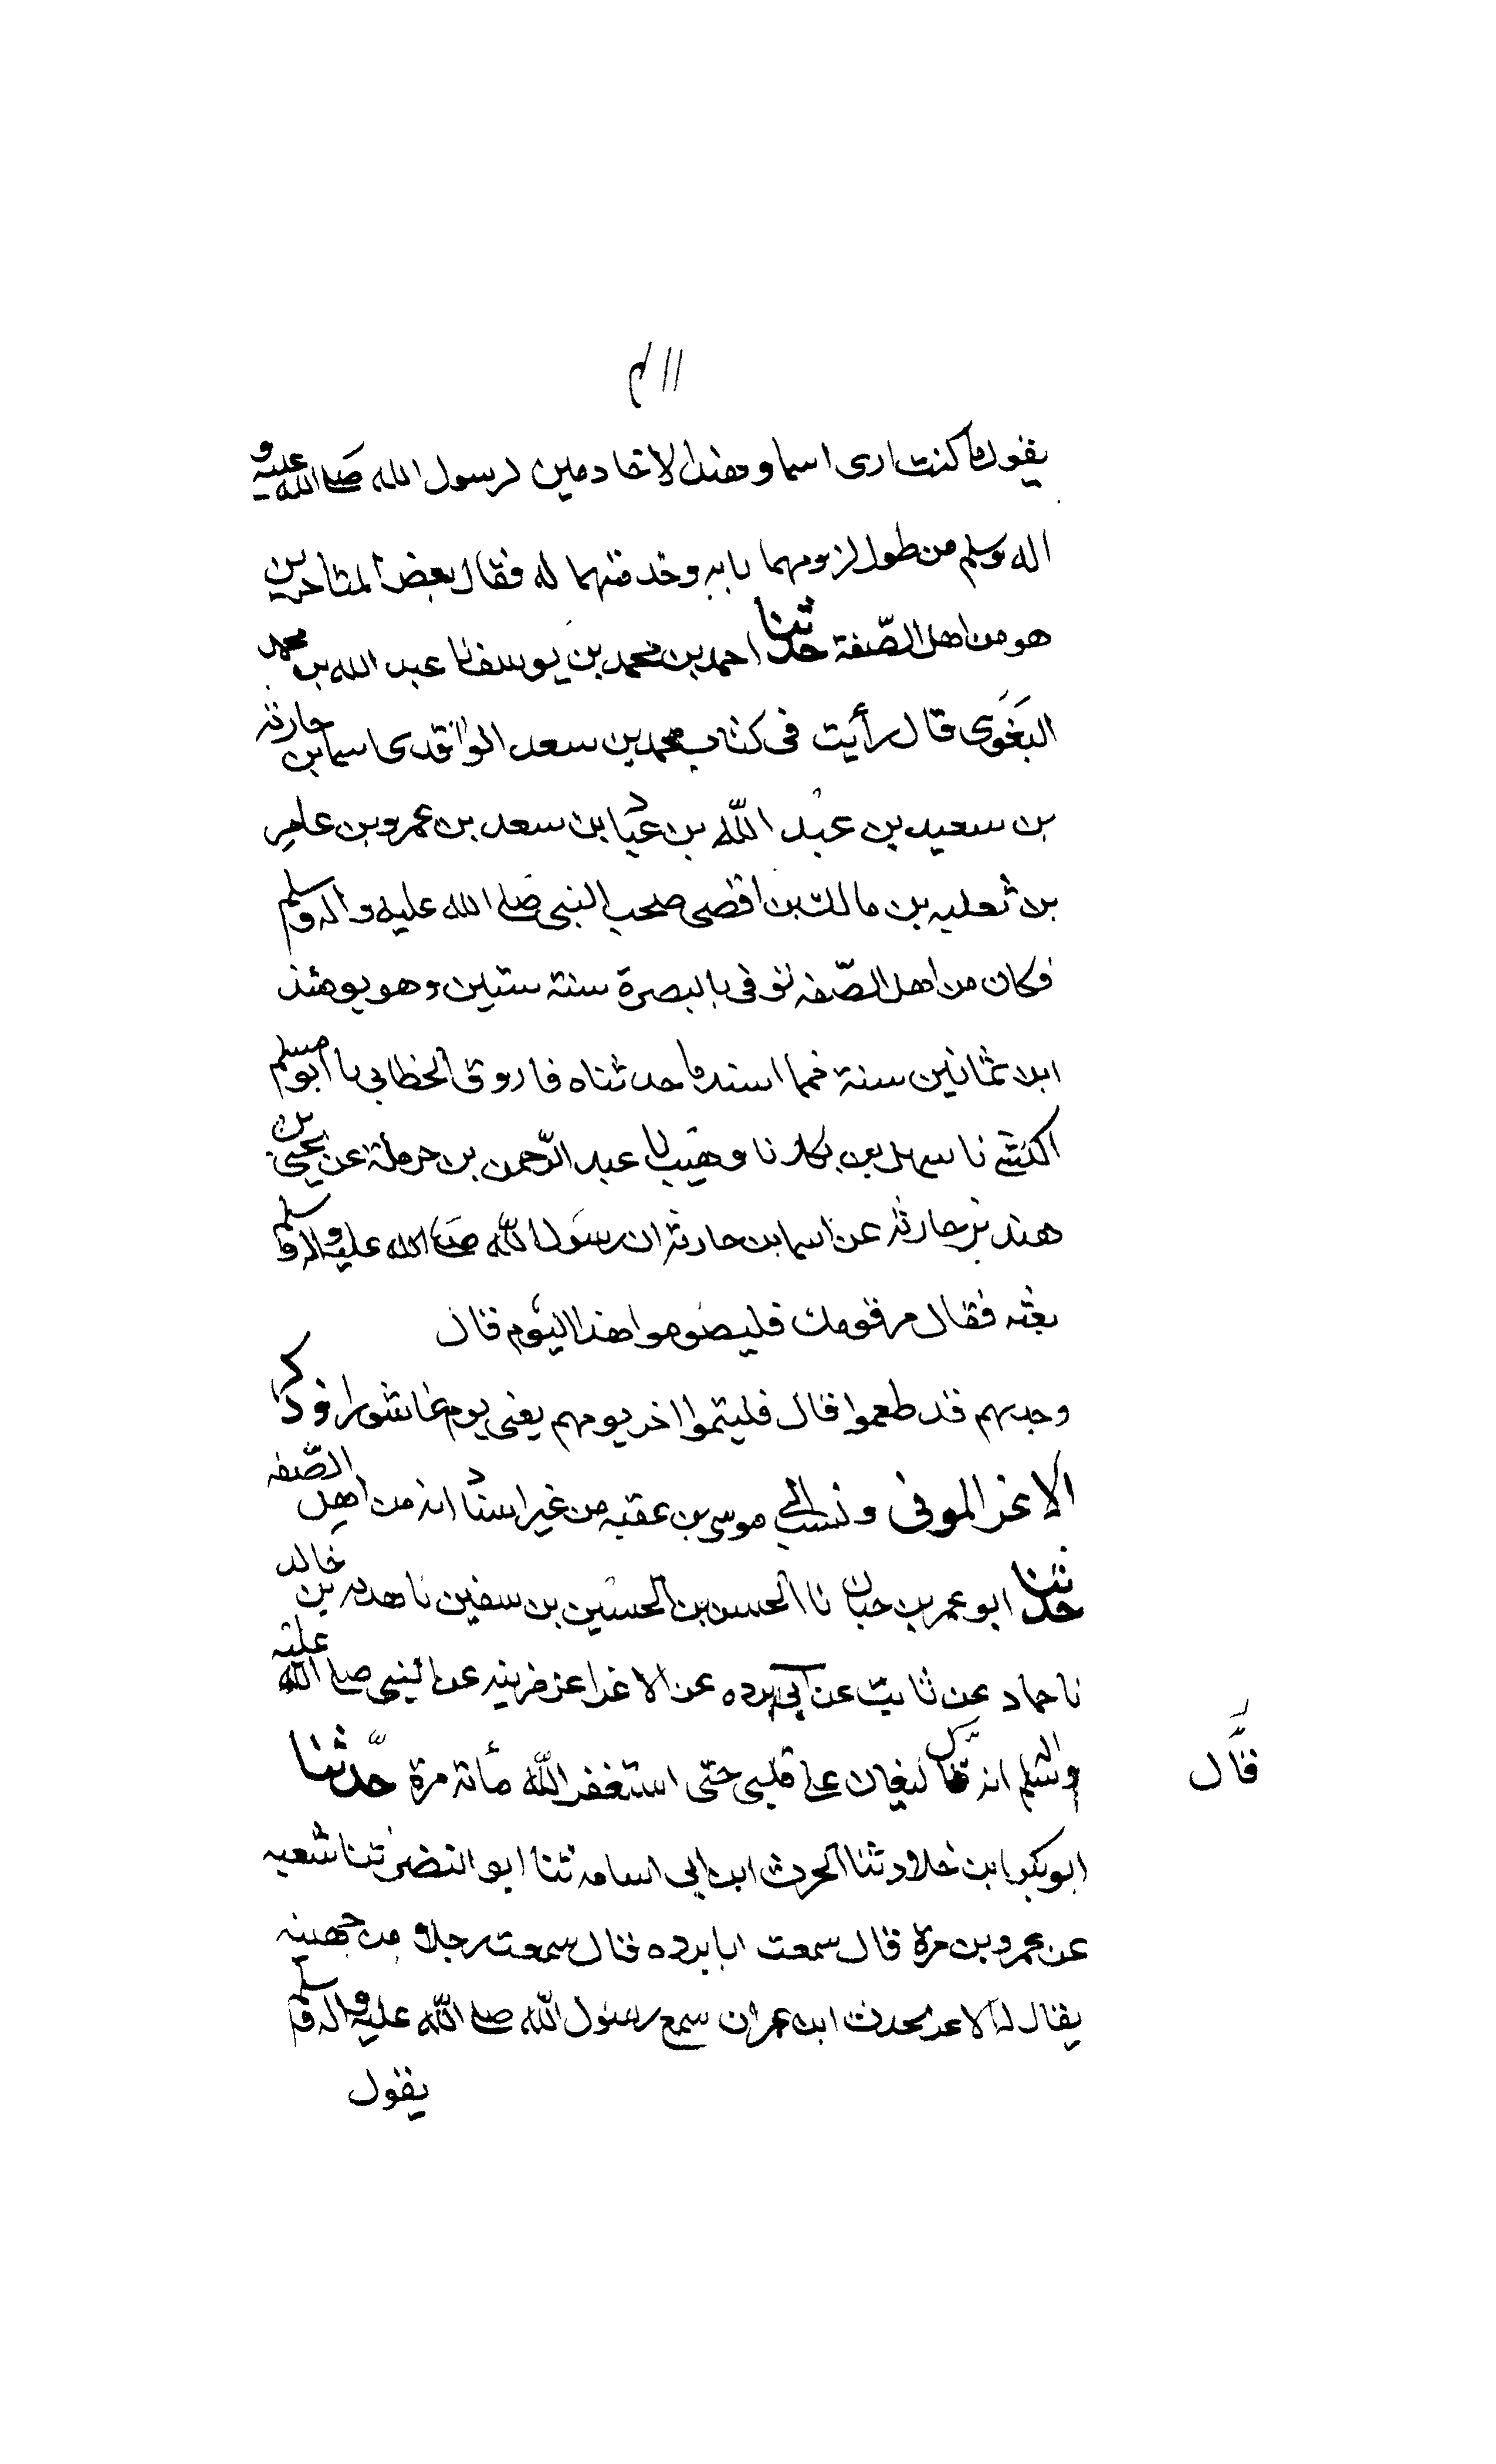 ١١٤
يقول ما كنت ارى اسما وهندا الا خادمين لرسول الله صلى الله عليه و
اله وسلم من طول لزومهما بابه وخدمتهما له فقال بعض المتاخرين
هو من اهل الصّفة حدثنا احمد بن محمد بن يوسف نا عبد الله بن محمد
البَغَوى قال رأيت فى كتاب محمد بن سعد الواقدى اسما بن حارثه
بن سعيد بن عبد الله بن عيّاد بن سعد بن عمرو بن عامر
بن ثعلبه بن مالك بن اقصى صحب النبى صلى الله عليه واله وسلم
وكان من اهل الصّفه توفى بالبصرة سنة ستين وهو يومئذ
ابن ثمانين سنة فمما اسند ما حدثناه فاروق الخطابي نا ابو مسلم
الكشي نا سهل بن بكار نا وهيب نا عبد الرّحمن بن حرملة عن يحيى بن
هند بن حارثه عن اسما بن حارثه ان رسول الله صلى الله عليه واله وسلم
بعثه فقال مر قومك فليصوموا هذا اليوم قال
وجدتهم قد طعموا قال فليتموا اخر يومهم يعنى يوم عاشورا وذكر
الاغر المزنى ونسب الى موسى بن عقبه من غير اسناد انه من اهل الصّفه
حدثنا ابو عمر بن حبان نا الحسن بن الحسين بن سفين نا هدبه بن خالد
نا حماد عن ثابت عن ابى برده عن الاغر اغر مزينه عن النبى صلى الله عليه
واله وسلم انه قال ليغان على قلبى حتى استغفر الله مأته مرة حدّثنا
قال
ابو بكر ابن خلاد ثنا الحرث ابن ابى اسامه ثنا ابو النضر ثنا شعبه
عن عمرو بن مرة قال سمعت ابا برده قال سمعت رجلا من جهينه
يقال له الاغر يحدث ابن عمر ان سمع رسول الله صلى الله عليه واله وسلم
يقول